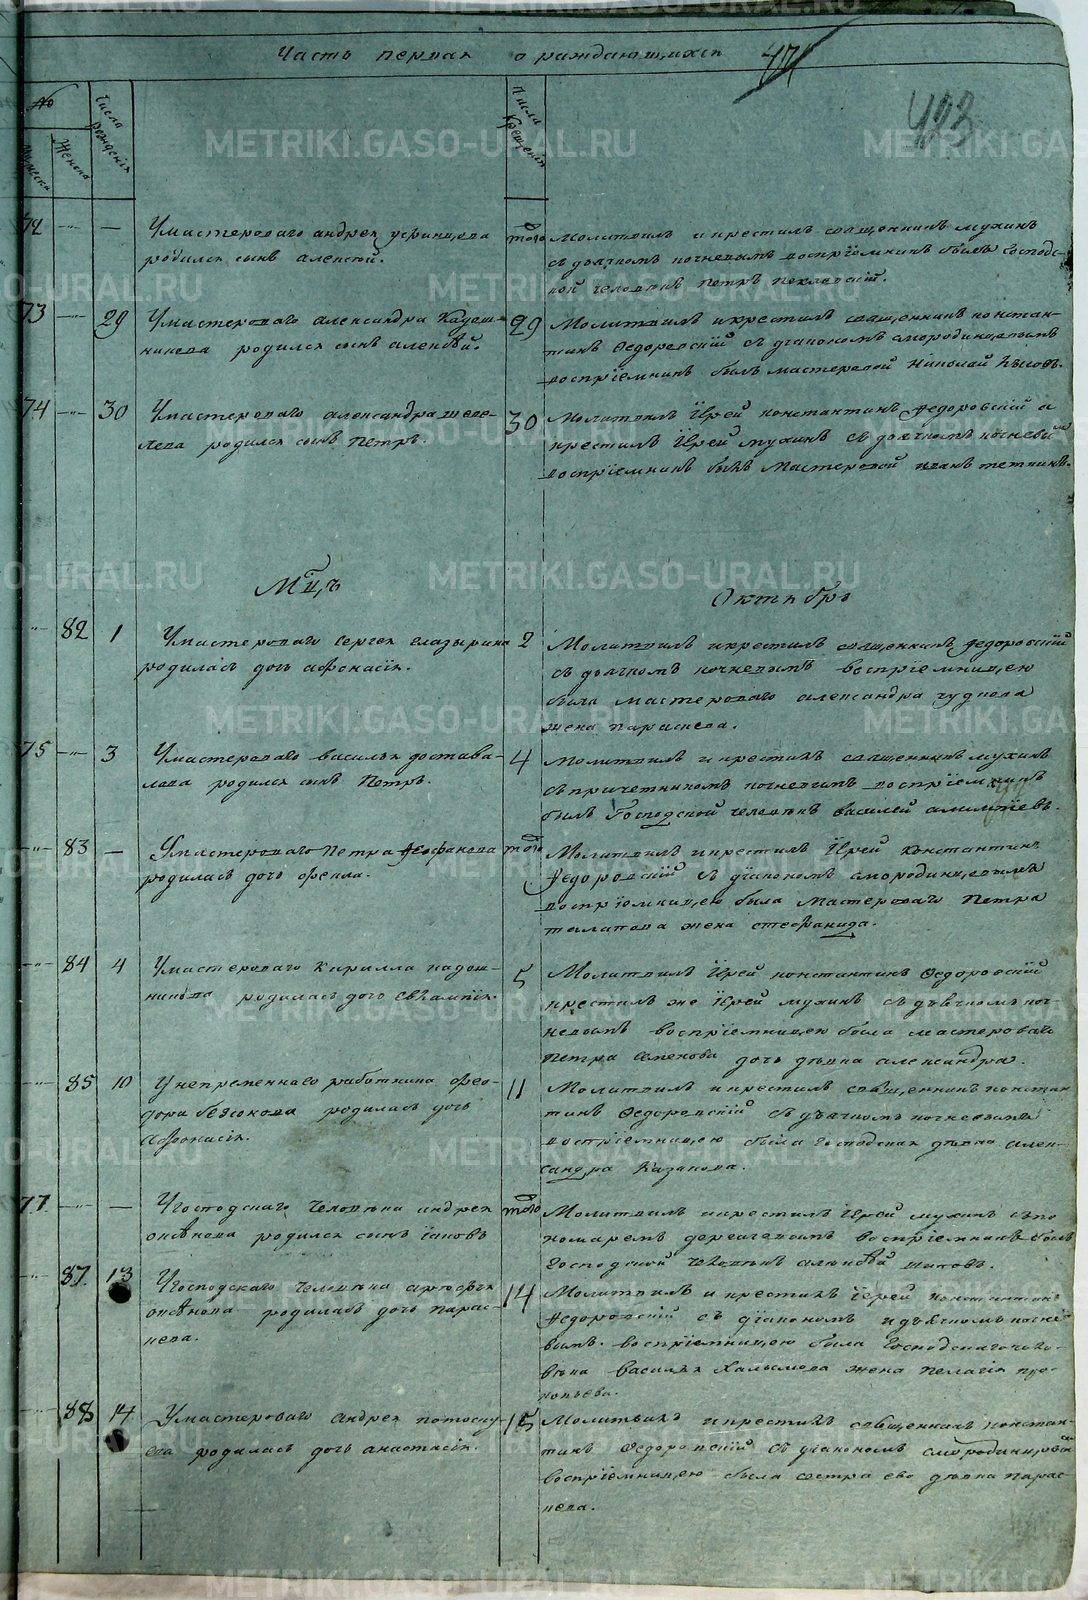 Часть первая о раждающихся 471
493
№
Мужеска
Женска
Числа рожденія
Числа Крещенія
72 — — Умастероваго андрея усфинцева
родился сынъ алексѣй.
того Молитвилъ и крестилъ священникъ мухинъ
съ дьячкомъ почневымъ воспріемникъ былъ господс-
кой человѣкъ Петръ
73 — 29 Умастероваго александра Кадош-
никова родился сынъ алексѣй.
29 Молитвилъ икрестилъ священникъ констан-
тинъ Федоровскій съ діакономъ смородинцовымъ
воспріемникъ былъ мастеровой Николай
74 — 30 Умастероваго александра шеве-
лева родился сынъ Петръ.
30 Молитвилъ Іерей константинъ Федоровскій а
крестилъ Іерей мухинъ съ дьячкомъ почневы
воспріемникъ былъ Мастеровой иванъ теткинъ.
Мцъ Октябрь
82 1 Умастероваго Сергея глазырина
родилась дочь афонасія.
2 Молитвилъ икрестилъ священникъ Федоровскій
съ дьячкомъ почневымъ воспріемницею
была мастероваго александра чуднова
жена параскева.
75 — 3 Умастероваго василья достова-
лова родился сынъ Петръ.
4 Молитвилъ и крестилъ священникъ мухинъ
съ причетникомъ почневымъ воспріемникъ
былъ Господской человѣкъ василей
83 — Умастероваго Петра Феофанова
родилась дочь Фекла.
того Молитвилъ икрестилъ Іерей константинъ
Федоровскій съ діакономъ смородинцевымъ
воспріемницею была Мастероваго Петра
талапова жена стефанида.
84 4 Умастероваго Кирилла кадош-
никова родилась дочь Евлампія.
5 Молитвилъ Іерей константинъ Федоровскій
крестилъ же Іерей мухинъ съ дьячкомъ поч-
невымъ воспріемницею была мастероваго
Петра семенова дочь дѣвка александра.
85 10 Унепременнаго работника Фео-
дора безсонова родилась дочь
Афонасія.
11 Молитвилъ икрестилъ священникъ констан
тинъ Федоровскій съ дьячкомъ почневымъ
воспріемницею была господская дѣвка алек-
сандра Казакова.
77 — — Угосподскаго Человѣка андрея
оксѣнова родился сынъ іаковъ
того Молитвилъ икрестилъ Іерей мухинъ съ по
номаремъ дерягенымъ воспріемникъ былъ
Господской человѣкъ алексѣй шитовъ.
87 13 Угосподскаго Человѣка
оксѣнова родилась дочь парас-
кева.
14 Молитвилъ и крестилъ іерей константинъ
Федоровскій съ діакономъ идьячкомъ почне-
вымъ. воспріемницею была Господскаго чело-
вѣка василья Халымова жена пелагія про-
копьева.
88 14 Умастероваго Андрея потоску-
ева родилась дочь анастасія.
15 Молитвилъ и крестилъ священникъ констан-
тинъ Федоровскій съ діакономъ Смородинцовы
воспріемницею была сестра ево дѣвка парас-
кева.